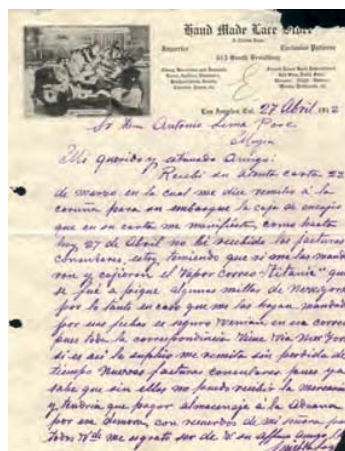 Hand Made Lace Store
Importer
Exclusive Patterns
Los Angeles, Cal. 27 Abril 1912
Sr Don Antonio Lema Pose
Mugia
Mi querido y estimado Amigo:
Recibi su atenta carta 22
de marzo en la cual me dice remitio á la
coruña para su embarque la caja de encajes
que en su carta me manifiesta, como hasta
hoy 27 de Abril no hé recibido las facturas
consulares, estoy temiendo que si me las manda
ron y cojieron el "Vapor Correo Titania" que
se fué a pique algunas millas de New York
por lo tanto en caso que me las hayan mandado
por sus fechas es seguro venian en ese correo
pues toda la correspondencia viene via New York
si es asi le suplico me remita sin perdida de
tiempo nuevas facturas consulares pues ya
sabe que sin ellas no puedo recibir la mercancia
y tendria que pagar almacenaje á la Aduana
por ese demora, con recuerdos de mi señora para
todos Vds me repito ser de V su affmo amigo